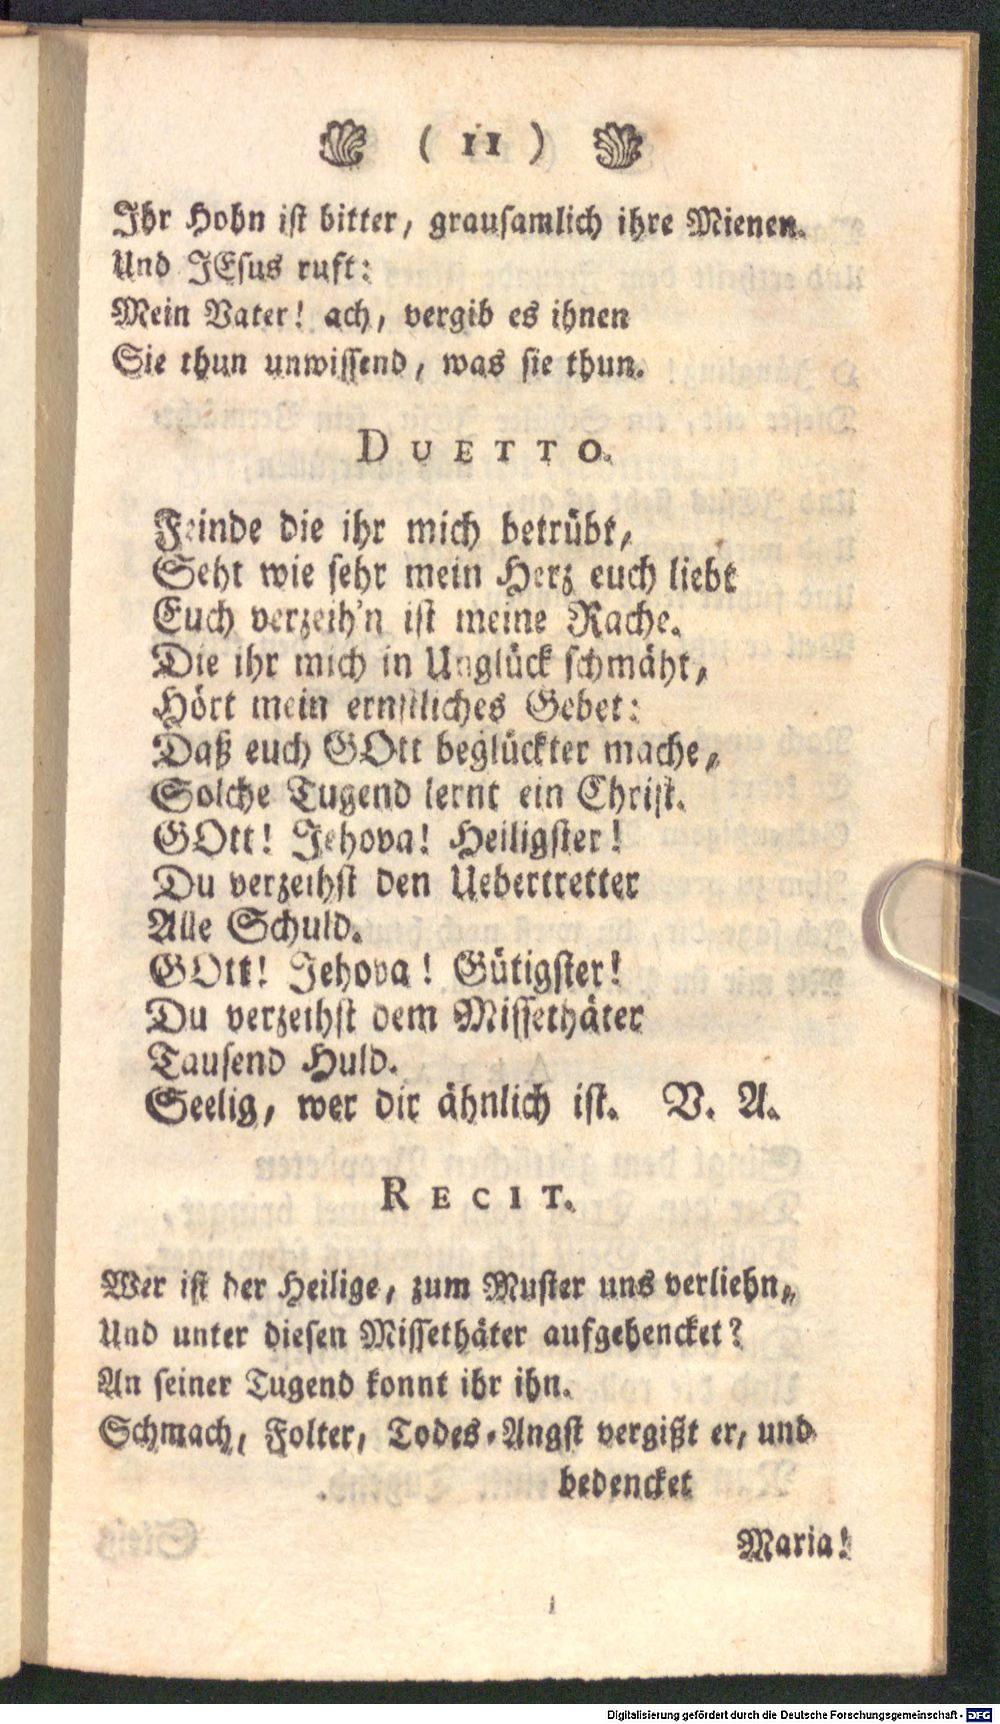 ( 11 )
Ihr Hohn ist bitter, grausamlich ihre Mienen.
Und JEsus ruft:
Mein Vater! ach, vergib es ihnen
Sie thun unwissend, was sie thun.
DUETTO.
Feinde die ihr mich betrübt,
Seht wie sehr mein Herz euch liebt
Euch verzeih'n ist meine Rache.
Die ihr mich in Unglück schmäht,
Hört mein ernstliches Gebet:
Daß euch GOtt beglückter mache,
Solche Tugend lernt ein Christ.
GOtt! Jehova! Heiligster!
Du verzeihst den Uebertretter
Alle Schuld.
GOtt! Jehova! Gütigster!
Du verzeihst dem Missethäter
Tausend Huld.
Seelig, wer dir ähnlich ist. V. A.
RECIT.
Wer ist der Heilige, zum Muster uns verliehn,
Und unter diesen Missethäter aufgehencket?
An seiner Tugend konnt ihr ihn.
Schmach, Folter, Todes-Angst vergißt er, und
bedencket
Maria!
Digitalisierung gefördert durch die Deutsche Forschungsgemeinschaft - DFG